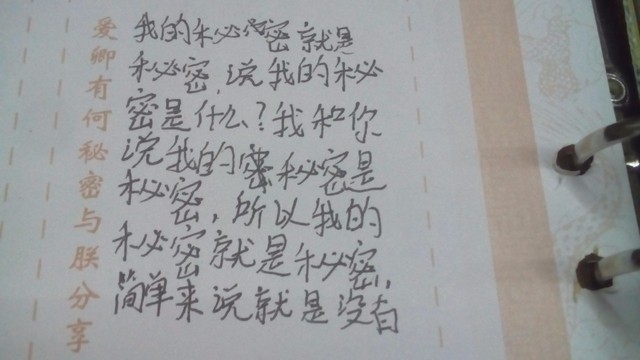 爱卿有何秘密与朕分享
我的秘密就是
秘密,说我的秘
密是什么?我和你
说我的密秘密是
秘密,所以我的
秘密就是秘密,
简单来说就是没有